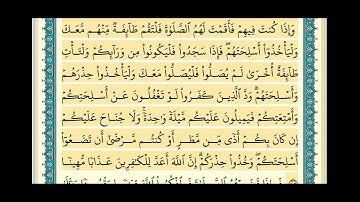 وَإِذَا كُنتَ فِيهِمْ فَأَقَمْتَ لَهُمُ ٱلصَّلَوٰةَ فَلْتَقُمْ طَآئِفَةٌ مِّنْهُم مَّعَكَ
وَلْيَأْخُذُوٓا۟ أَسْلِحَتَهُمْ فَإِذَا سَجَدُوا۟ فَلْيَكُونُوا۟ مِن وَرَآئِكُمْ وَلْتَأْتِ
طَآئِفَةٌ أُخْرَىٰ لَمْ يُصَلُّوا۟ فَلْيُصَلُّوا۟ مَعَكَ وَلْيَأْخُذُوا۟ حِذْرَهُمْ
وَأَسْلِحَتَهُمْ ۗ وَدَّ ٱلَّذِينَ كَفَرُوا۟ لَوْ تَغْفُلُونَ عَنْ أَسْلِحَتِكُمْ
وَأَمْتِعَتِكُمْ فَيَمِيلُونَ عَلَيْكُم مَّيْلَةً وَٰحِدَةً ۚ وَلَا جُنَاحَ عَلَيْكُمْ
إِن كَانَ بِكُمْ أَذًى مِّن مَّطَرٍ أَوْ كُنتُم مَّرْضَىٰٓ أَن تَضَعُوٓا۟
أَسْلِحَتَكُمْ ۖ وَخُذُوا۟ حِذْرَكُمْ ۗ إِنَّ ٱللَّهَ أَعَدَّ لِلْكَٰفِرِينَ عَذَابًا مُّهِينًا